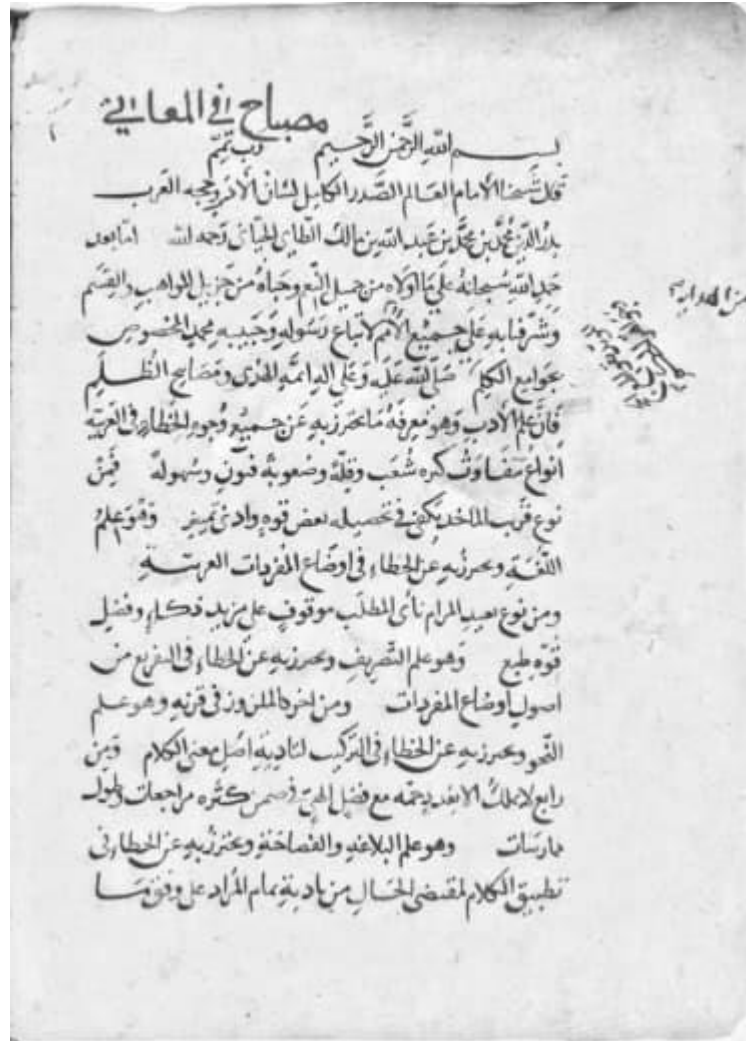 مصباح في المعاني
بسم الله الرَّحمن الرَّحيم رب تمّم
قال شيخنا الأمام العالم الصَّدر الكامل لسان الأدب وحجه العرب
بدر الدين محمَّد بن محمَّد بن عبد الله بن مالك الطاى الجيانى رحمه الله امّا بعد
حمد الله سبحانه على ما اولاه من جميل النعم وحباهُ من جزيل المواهب والقسم
وشرفنا به على جميع الأمم لاتباع رسوله وحبيبه محمد المخصوص
بجوامع الكلم صلى الله عليه وعلى اله ائمه الهدى ومصابيح الظُّلم
فانَّ علم الأدب وهو معرفة ما يحترز به عن جميع وجوه الخطاء فى العربيّه
أنواع متفاوتُ كثره شُعَب وقلّة وصعوبة فنونٍ وسُهولة فمن
نوع قرب الماخذ يكفى فى تحصيله بعض قوه وادنى تمييز وهو علم
اللغة ويحترز به عن الخطاء فى اوضاع المفردات العربية
ومن نوع بعيد المرام نأى المطلب موقوف على مزيد ذكاء وفضل
قوّه طبع وهو علم التَّصريف ويحترز به عن الخطاء فى التفريع من
اصول اوضاع المفردات ومن اخر كالملزوز فى قرنه وهو علم
النَّحو ويحترز به عن الخطاء فى التركيب لتاديه اصل معنى الكلام ومن
رابع لا يملكُ الا بعدد جمّه مع فضل الهىّ فى ضمن كثره مراجعات وطول
ممارسات وهو علم البلاغه والفصاحة ويحترز به عن الخطاء فى
تطبيق الكلام لمقتضى الحال من تادية تمام المراد على وفق ما